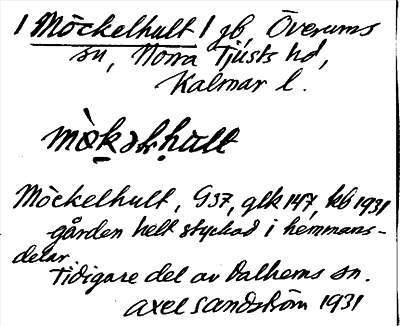 / Möckelhult / gb, Överums
sn, Norra Tjusts hd,
Kalmar l.
Möckelhult, G37, glk 147, kb 1931
gården helt styckad i hemmans-
delar
Tidigare del av Dalhems sn.
Axel Sandström 1931